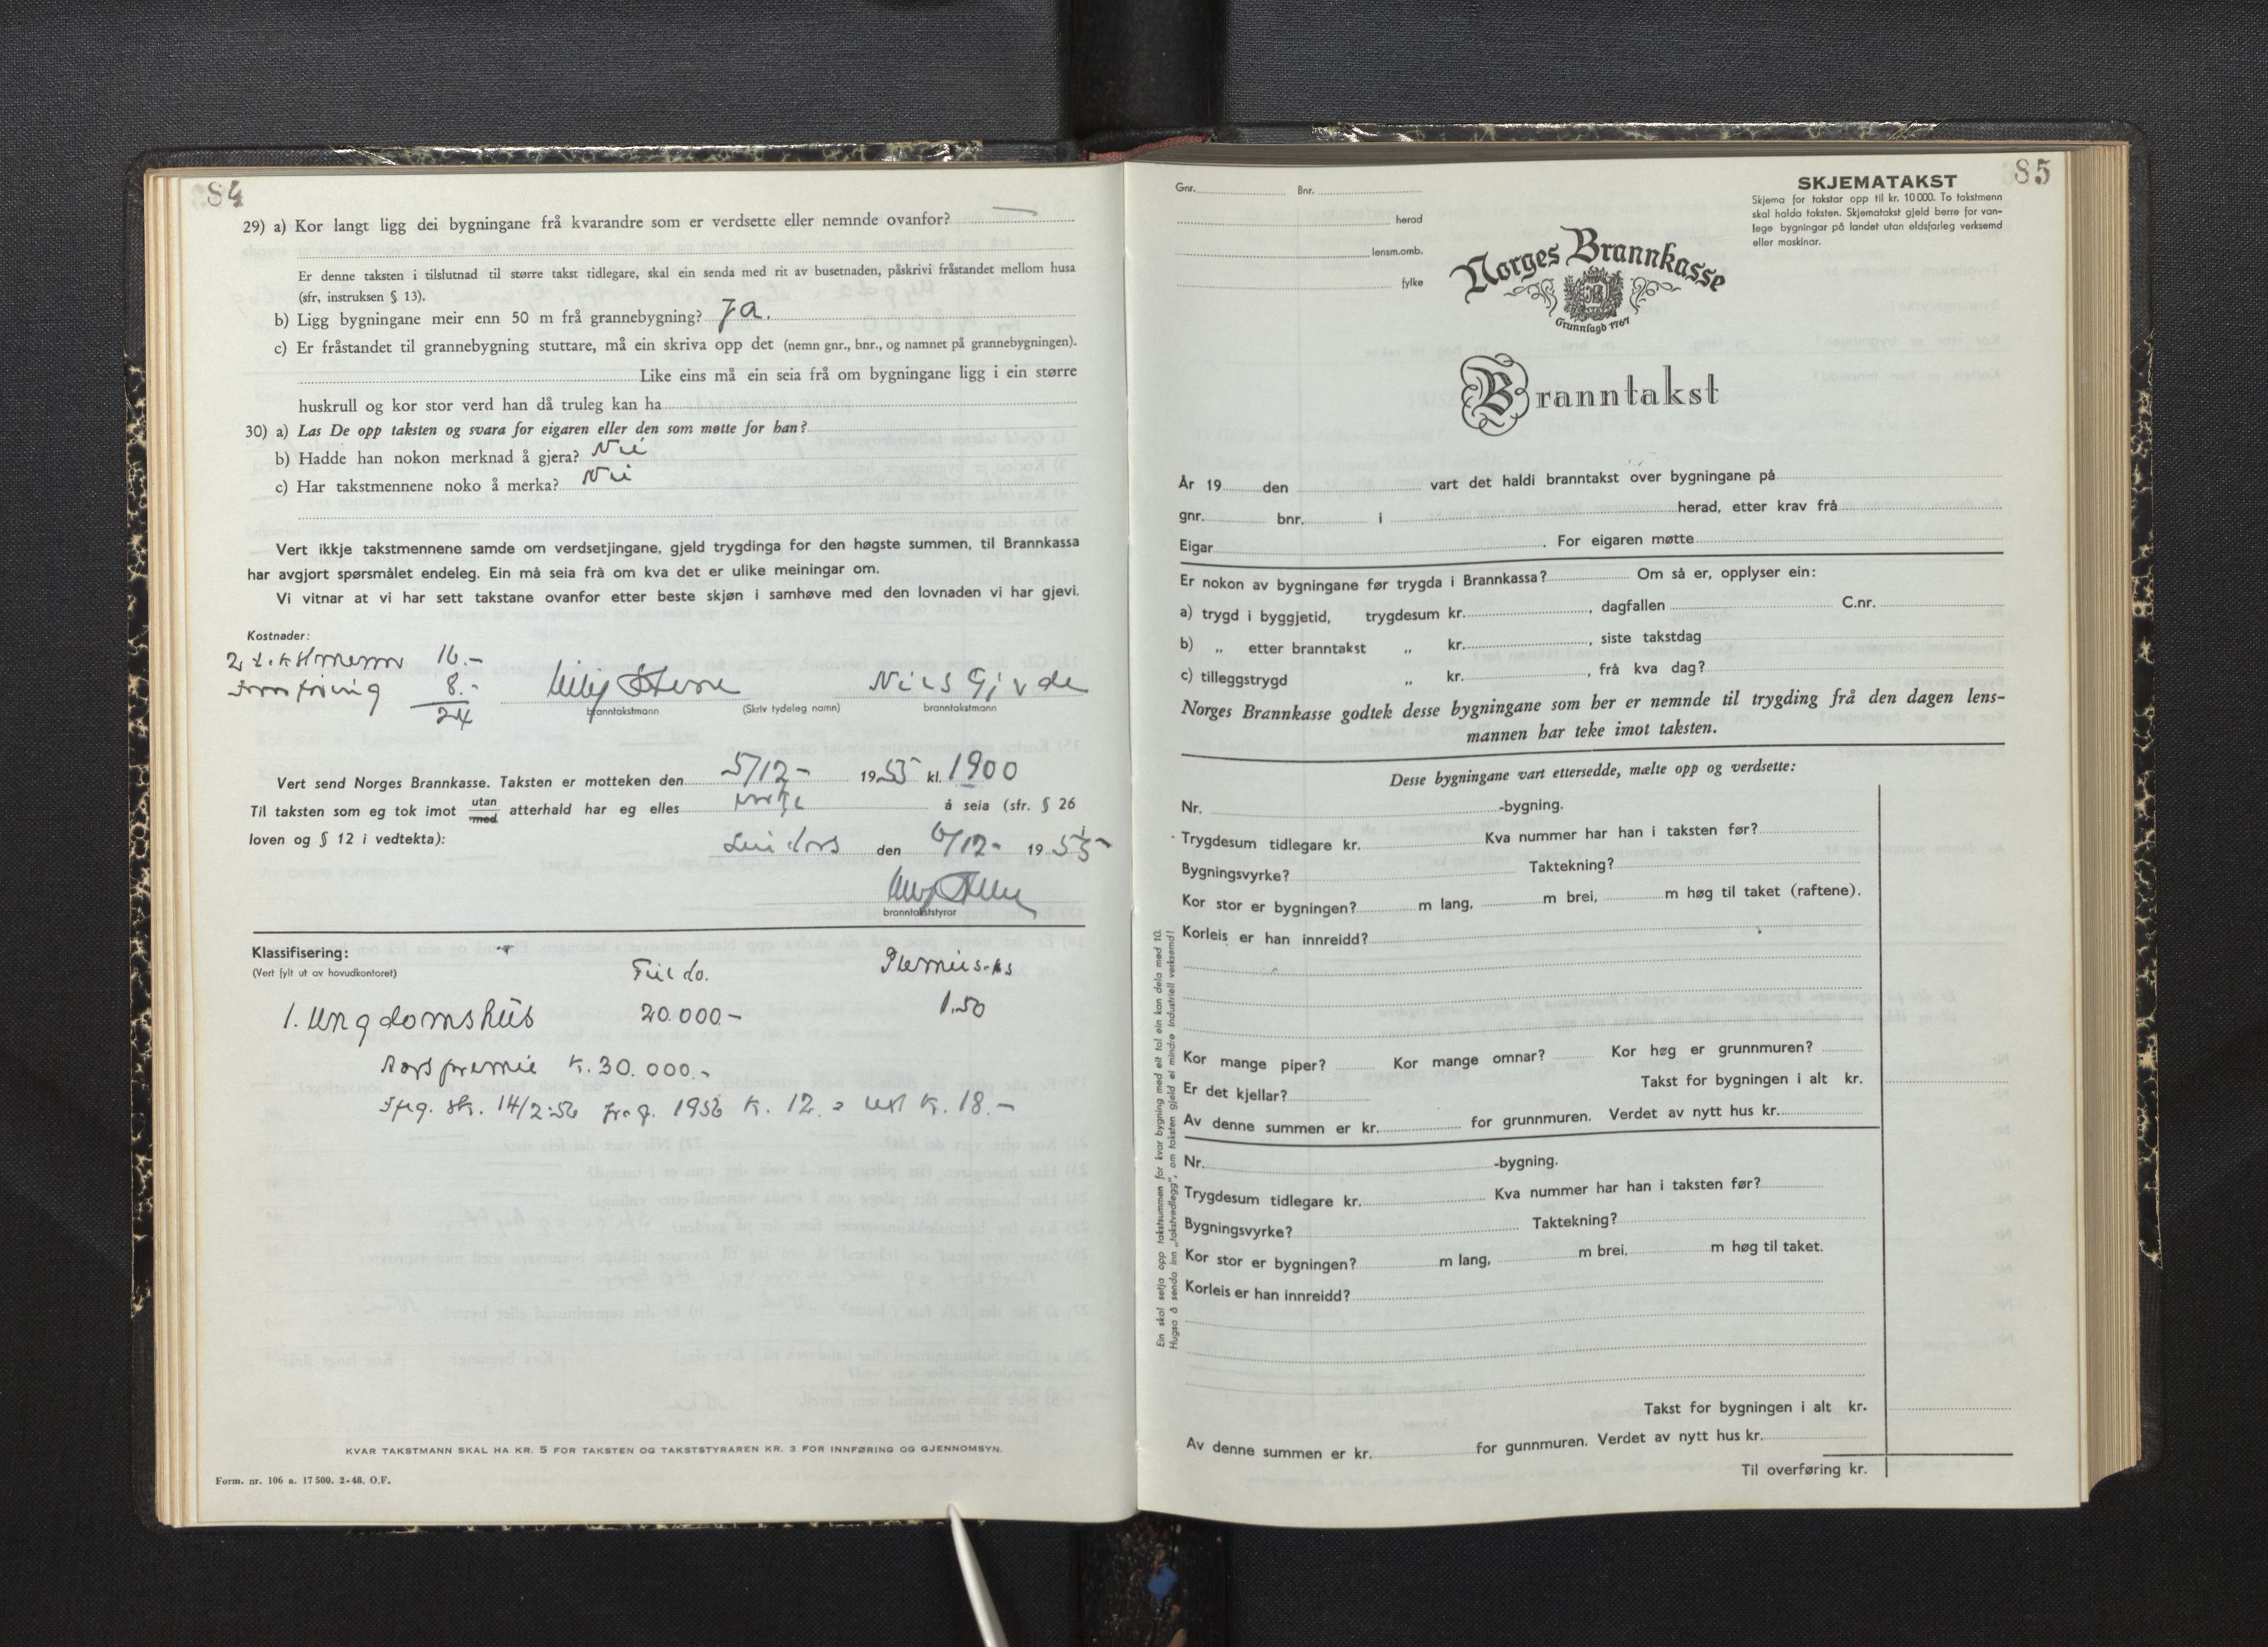 84
29) a) Kor langt ligg dei bygningane frå kvarandre som er verdsette eller nemnde ovanfor? —
Er denne taksten i tilslutnad til større takst tidlegare, skal ein senda med rit av busetnaden, påskrivi fråstandet mellom husa
(sfr, instruksen § 13).
b) Ligg bygningane meir enn 50 m frå grannebygning? Ja.
c) Er fråstandet til grannebygning stuttare, må ein skriva opp det (nemn gnr., bnr., og namnet på grannebygningen).
Like eins må ein seia frå om bygningane ligg i ein større
huskrull og kor stor verd han då truleg kan ha
30) a) Las De opp taksten og svara for eigaren eller den som møtte for han?
b) Hadde han nokon merknad å gjera? Nei
c) Har takstmennene noko å merka? Nei
Vert ikkje takstmennene samde om verdsetjingane, gjeld trygdinga for den høgste summen, til Brannkassa
har avgjort spørsmålet endeleg. Ein må seia frå om kva det er ulike meiningar om.
Vi vitnar at vi har sett takstane ovanfor etter beste skjøn i samhøve med den lovnaden vi har gjevi.
Kostnader:
2 takstmenn 16.-
Innføring 8.-
24
Nils Gjvde
branntakstmann (Skriv tydeleg namn) branntakstmann
Vert send Norges Brannkasse. Taksten er motteken den 5/12- 1955 kl. 1900
Til taksten som eg tok imot utan/med atterhald har eg elles å seia (sfr. § 26
loven og § 12 i vedtekta):
den 6/12- 1955
branntakststyrar
Klassifisering:
(Vert fylt ut av hovudkontoret)
Premiesats
1. Ungdomshus 20.000.- 1.50
Aarspremie K. 30.000.-
14/2-56 1956 K. 12. K. 18.-
KVAR TAKSTMANN SKAL HA KR. 5 FOR TAKSTEN OG TAKSTSTYRAREN KR. 3 FOR INNFØRING OG GJENNOMSYN.
Form. nr. 106 a. 17 500. 2-48. O.F.
85
Gnr. Bnr.
herad
lensm.omb.
fylke
SKJEMATAKST
Skjema for takstar opp til kr. 10 000. To takstmenn
skal halda taksten. Skjematakst gjeld berre for van-
lege bygningar på landet utan eldsfarleg verksemd
eller maskinar.
Norges Brannkasse
Grunnlagd 1767
Branntakst
År 19 den vart det haldi branntakst over bygningane på
gnr. bnr. i herad, etter krav frå
Eigar. For eigaren møtte
Er nokon av bygningane før trygda i Brannkassa? Om så er, opplyser ein:
a) trygd i byggjetid, trygdesum kr. , dagfallen C.nr.
b) „ etter branntakst „ kr. , siste takstdag
c) tilleggstrygd „ kr. , frå kva dag?
Norges Brannkasse godtek desse bygningane som her er nemnde til trygding frå den dagen lens-
mannen har teke imot taksten.
Desse bygningane vart ettersedde, mælte opp og verdsette:
Nr. -bygning.
Trygdesum tidlegare kr. Kva nummer har han i taksten før?
Bygningsvyrke? Taktekning?
Kor stor er bygningen? m lang, m brei, m høg til taket (raftene).
Korleis er han innreidd?
Kor mange piper? Kor mange omnar? Kor høg er grunnmuren?
Er det kjellar? Takst for bygningen i alt kr.
Av denne summen er kr. for grunnmuren. Verdet av nytt hus kr.
Nr. -bygning.
Trygdesum tidlegare kr. Kva nummer har han i taksten før?
Bygningsvyrke? Taktekning?
Kor stor er bygningen? m lang, m brei, m høg til taket.
Korleis er han innreidd?
Takst for bygningen i alt kr.
Av denne summen er kr. for gunnmuren. Verdet av nytt hus kr.
Til overføring kr.
Ein skal setja opp takstsummen for kvar bygning med eit tal ein kan dela med 10.
Hugsa å senda inn „takstvedlegg", om taksten gjeld ei mindre industriell verksemd!